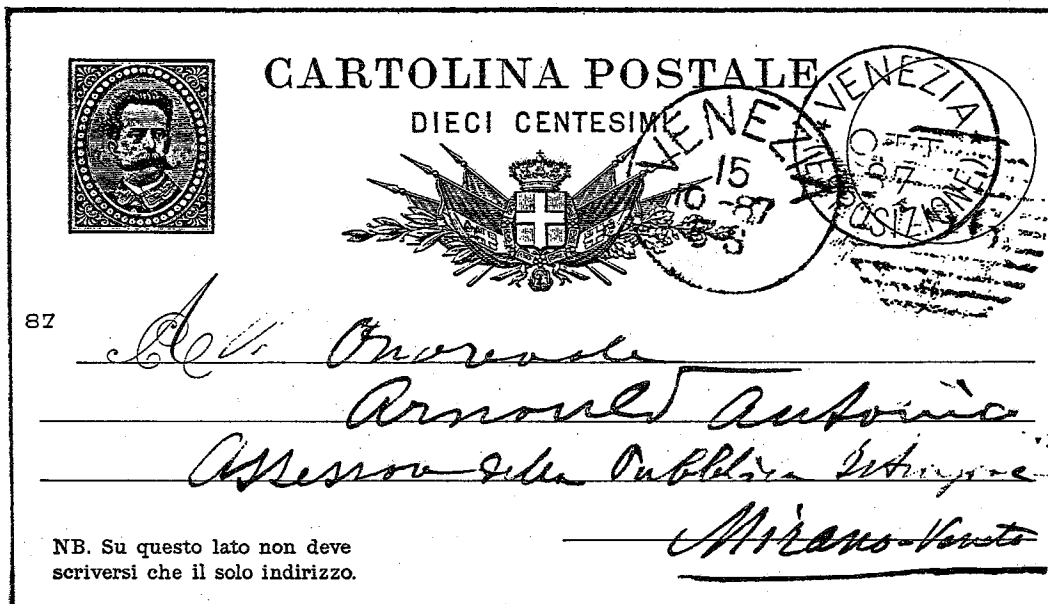 CARTOLINA POSTALE
DIECI CENTESIMI
VENEZIA
15
10-87
VENEZIA
(ESPOSIZIONE)
87
All' Onorevole
Arnould Antonio
Assessore della Pubblica Istruzione
Mirano-Veneto
NB. Su questo lato non deve
scriversi che il solo indirizzo.